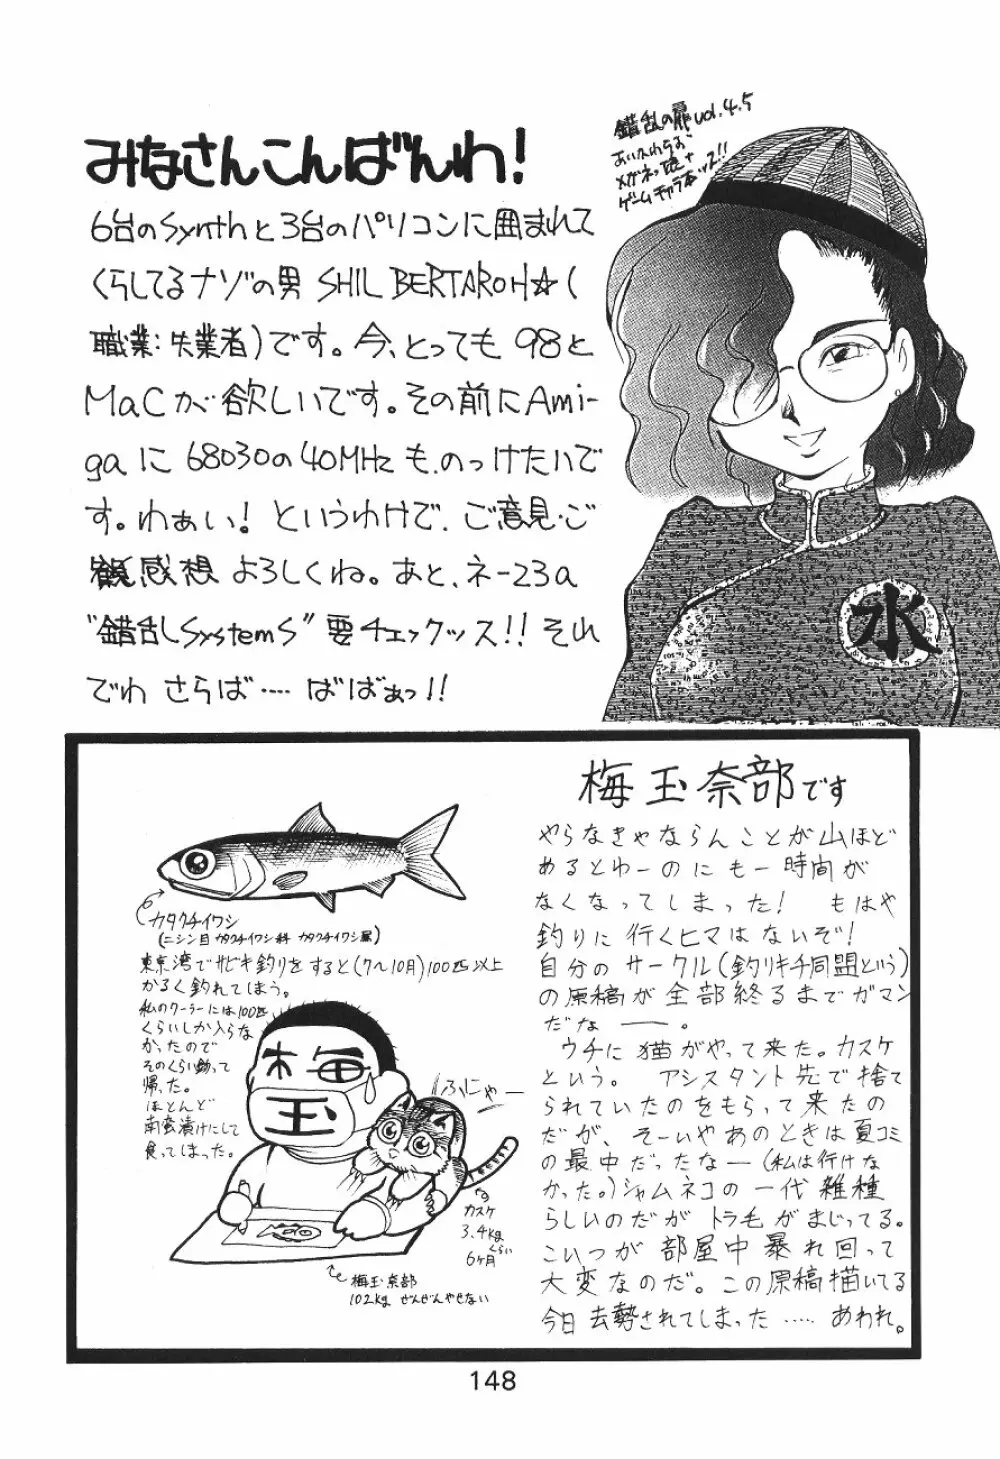 みなさんこんばんわ!
6台のSynthと3台のパソコンに囲まれて
くらしてるナゾの男 SHIL BERTAROH☆(
職業:失業者)です。今、とっても 98と
MaCが欲しいです。その前にAmi-
gaに68030の40MHzも、のっけたいで
す。わぁい! というわけで、ご意見・ご
感想 よろしくね。あと、ネー23a
"錯乱SystemS"要チェックッス!! それ
でわ さらば…. ばばぁっ!!
錯乱の扉vol.4.5
あいかわらず
メガネっ娘+
ゲームキャラ本ッス!!
水
梅玉奈部です
やらなきゃならんことが山ほど
あるとゆーのにも一時間が
なくなってしまった! もはや
釣りに行くヒマはないぞ!
自分のサークル(釣りキチ同盟という)
の原稿が全部終るまでガマン
だなー。
ウチに猫がやって来た。カスケ
という。 アシスタント先で捨て
られていたのをもらって来たの
だが、そーいやあのときは夏コミ
の最中だったなー(私は行けな
かった。)シャムネコの一代雑種
らしいのだがトラ毛がまじってる。
こいつが部屋中暴れ回って
大変なのだ。この原稿描いてる
今日去勢されてしまった ….. あわれ。
カタクチイワシ
(ニシン目カタクチイワシ科 カタクチイワシ属)
東京湾でサビキ釣りをすると(7~10月)100匹以上
かるく釣れてしまう。
私のクーラーには100匹
くらいしか入らな
かったので
そのくらい釣って
帰った。
ほとんど
南蛮漬けにして
食ってしまった。
梅
玉
ふにゃー
カスケ
3.4kgくらい
6ヶ月
梅玉奈部
102kg ぜんぜんやせない
148